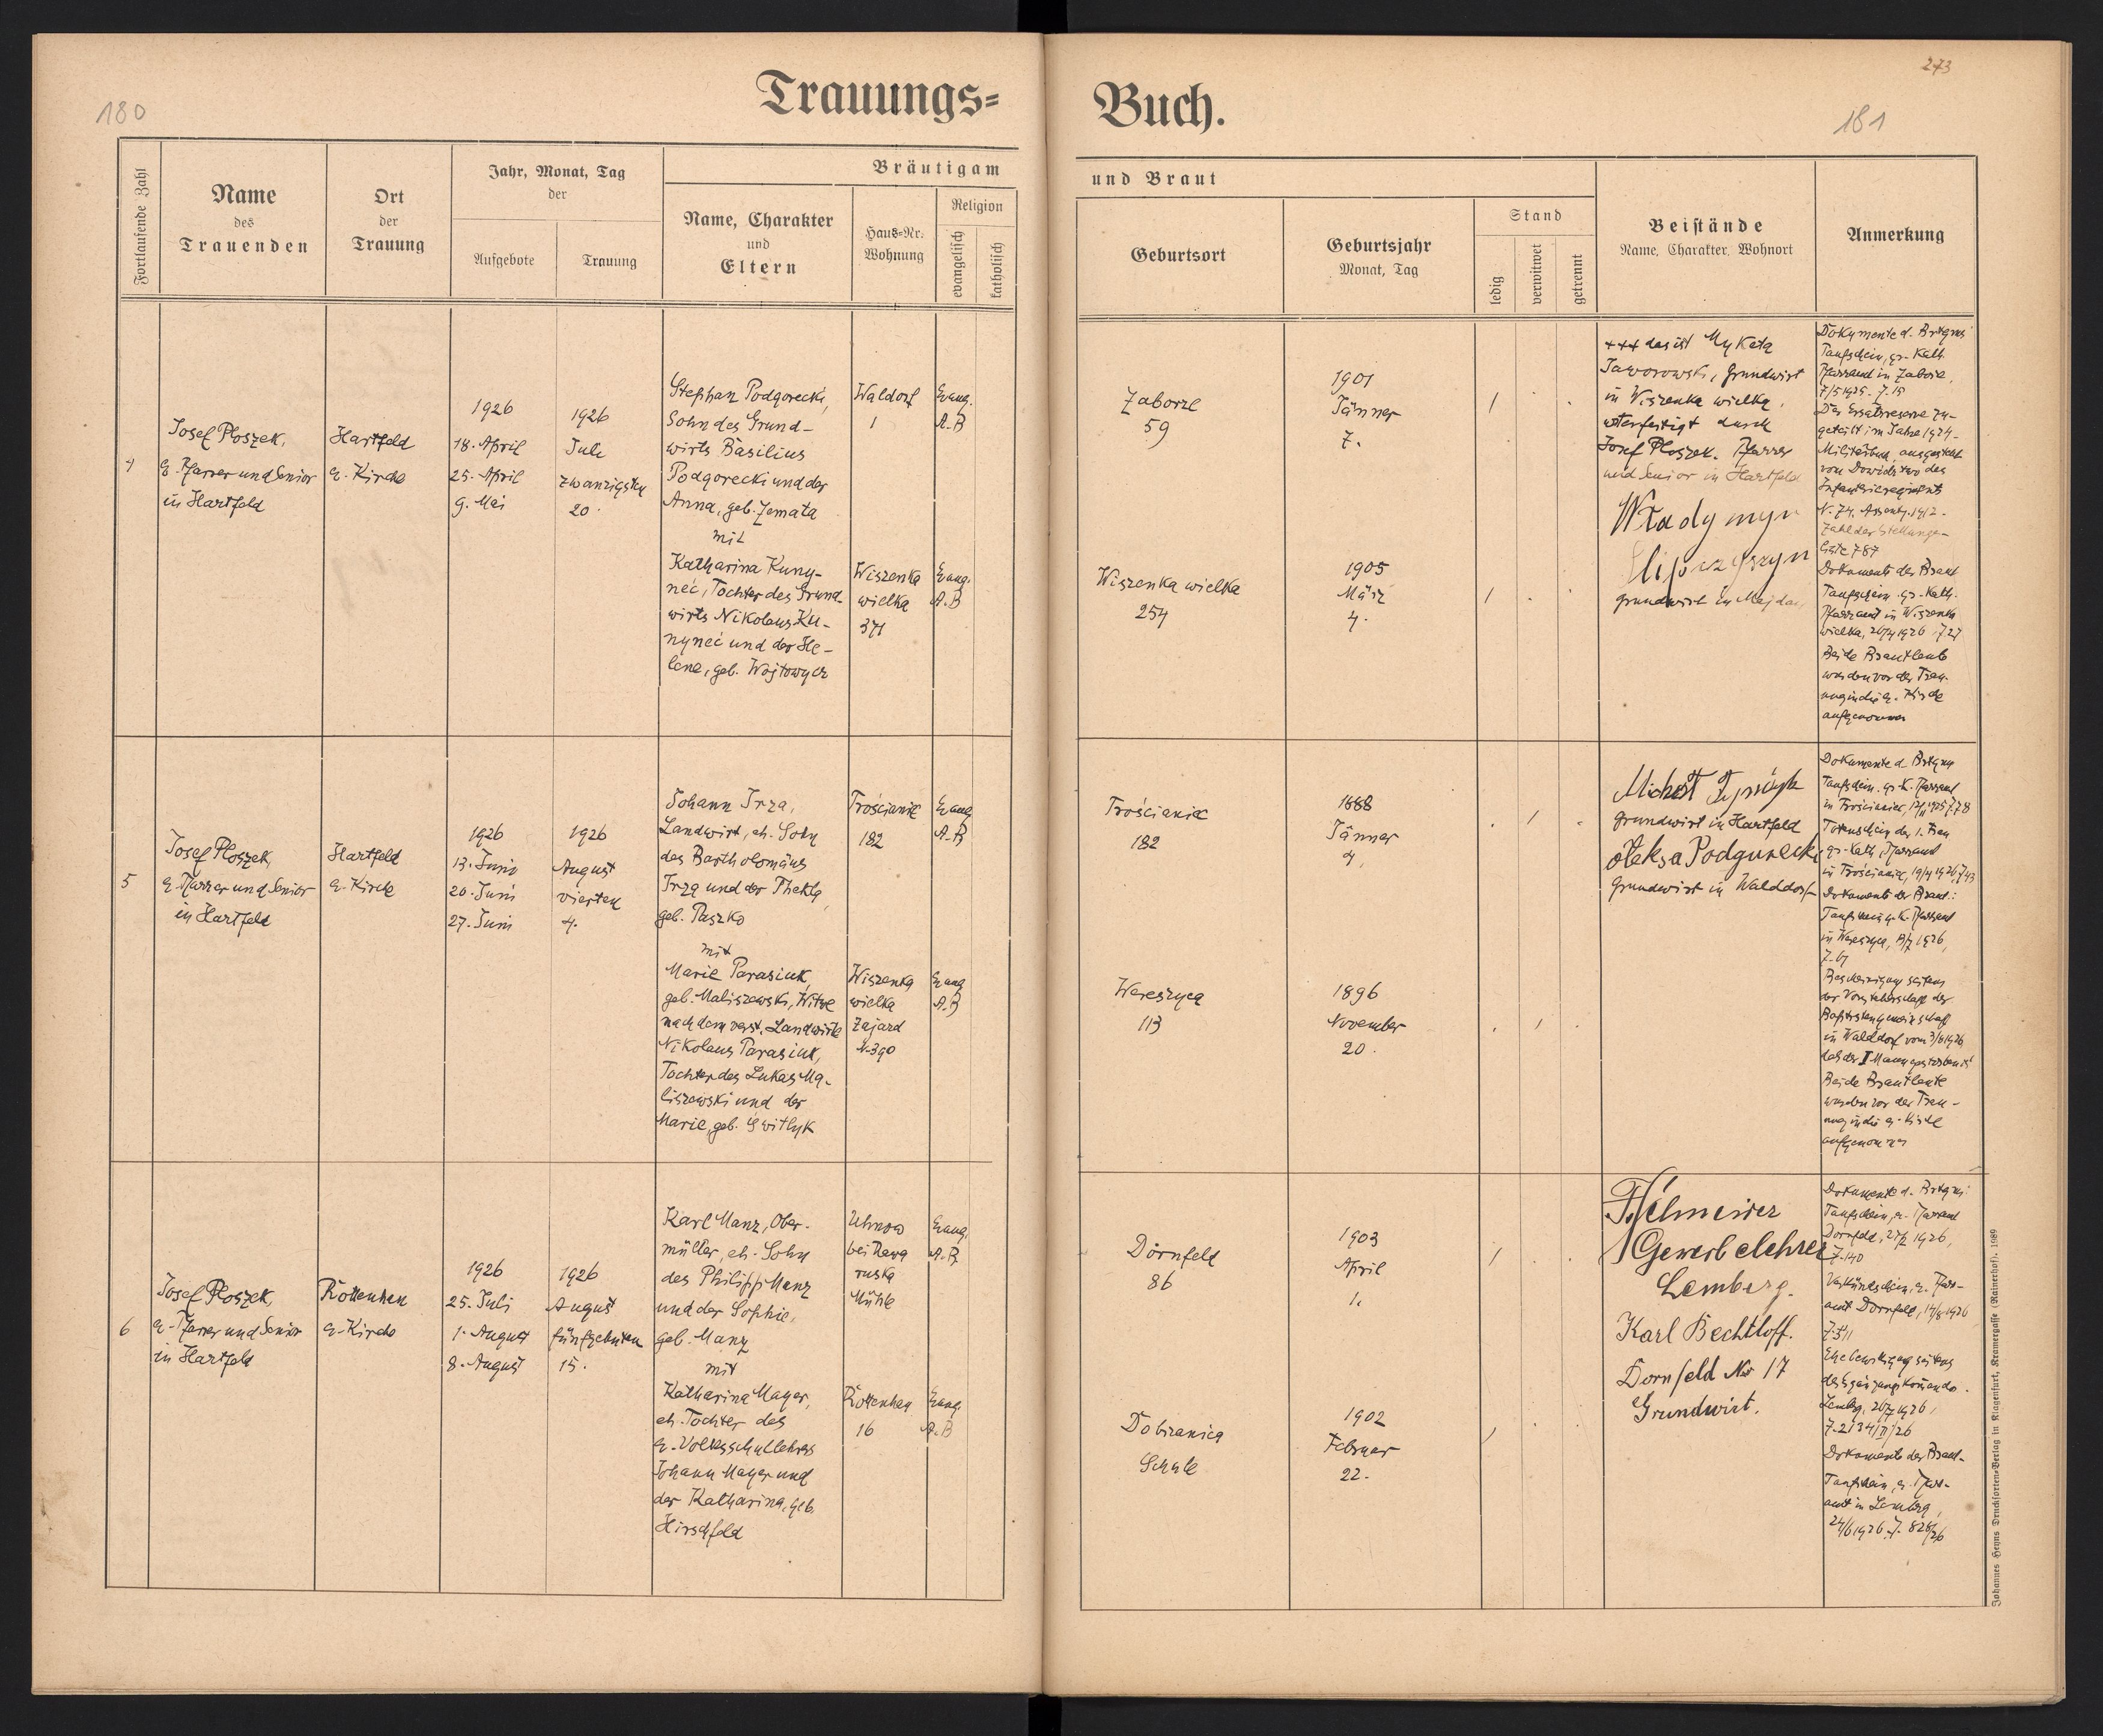 180
Trauungs=
Fortlaufende Zahl
Name
des
Trauenden
Ort
der
Trauung
Jahr, Monat, Tag
der
Aufgebote
Trauung
Bräutigam
Name, Charakter
und
Eltern
Haus=Nr.
Wohnung
Religion
evangelisch
katholisch
4
Josef Ploszek,
e. Pfarrer und Senior
in Hartfeld
Hartfeld
e. Kirche
1926
18. April
25. April
9. Mai
1926
Juli
zwanzigsten
20.
Stephan Podgorecki,
Sohn des Grund-
wirts Basilius
Podgorecki und der
Anna, geb. Zemata
mit
Katharina Kuny-
neć, Tochter des Grund-
wirts Nikolaus Ku-
nyneć und der He-
lene, geb. Wojtowycz
Waldorf
1
Wiszenka
wielka
371
Evang.
A.B
Evang.
A.B
5
Josef Ploszek,
e. Pfarrer und Senior
in Hartfeld
Hartfeld
e. Kirche
1926
13. Juni
20. Juni
27. Juni
1926
August
vierten
4.
Johann Irza,
Landwirt, eh. Sohn
des Bartholomäus
Irza und der Thekla,
geb. Paszko
mit
Marie Parasiuk,
geb. Maliszewski, Witwe
nach dem verst. Landwirte
Nikolaus Parasiuk,
Tochter des Lukas Ma-
liszewski und der
Marie, geb. Switlyk
Trościaniec
182
Wiszenka
wielka
Zajazd
N. 390
Evang
A.B
Evang
A.B
6
Josef Ploszek,
e. Pfarrer und Senior
in Hartfeld
Rottenhan
e. Kirche
1926
25. Juli
1. August
8. August
1926
August
fünfzehnten
15.
Karl Manz, Ober-
müller, eh. Sohn
des Philipp Manz
und der Sophie,
geb. Manz
mit
Katharina Mayer,
eh. Tochter des
e. Volksschullehrers
Johann Mayer und
der Katharina, geb.
Hirschfeld
Uhnow
bei Rawa
ruska
Mühle
Rottenhan
16
Evang.
A.B
Evang.
A.B
273
181
Buch.
und Braut
Geburtsort
Geburtsjahr
Monat, Tag
Stand
ledig
verwitwet
getrennt
Beistände
Name, Charakter, Wohnort
Anmerkung
Zaborze
59
1901
Jänner
7.
Wiszenka wielka
254
1905
März
4.
+++ das ist Mykata
Jaworowski, Grundwirt
in Wiszenka wielka,
unterfertigt durch
Josef Ploszek. Pfarrer
und Senior in Hartfeld
Grundwirt in Majdan
Dokumente d. Brtgms
Taufschein, gr.-Kath.
Pfarramt in Zaborze,
7/5 1925. Z. 15
Der Ersatzreserve zu-
geteilt im Jahre 1924.
Militärbuch, ausgestellt
von Dowództwo des
Infanterieregiments
Zahl der Stellungs-
Liste 787
Dokumente der Braut
Taufschein gr.-Kath.
Pfarramt in Wiszenka
wielka, 26/4 1926 Z 27
Beide Brautleute
wurden vor der Trau-
ung in die e. Kirche
aufgenommen
Trościaniec
182
1888
Jänner
4.
Wereszyca
113
1896
November
20.
Grundwirt in Hartfeld
Oleksa Podgurecki
Grundwirt in Walddorf
Dokumente d. Brtgms
Taufschein. gr. K. Pfarramt
Totenschein der 1. Frau
gr.-Kath. Pfarramt
Dokumente der Braut:
Taufschein g. K. Pfarramt
in Wereszyca, 8/7 1926,
Z. 61
Bescheinigung seitens
der Vorsteherschaft der
Baptistengemeinschaft
in Walddorf vom 3/6 1926
daß der I Mann gestorben ist
Beide Brautleute
wurden vor der Trau-
ung in die e. Kirche
aufgenommen
Dornfeld
86
1903
April
1.
Dobzanica
Schule
1902
Februar
22.
Gewerbelehrer
Lemberg.
Karl Bechtloff.
Dornfeld No 17
Grundwirt.
Dokumente d. Brtgms:
Taufschein, e. Pfarramt
Dornfeld, 27/7 1926,
Z. 140
Verkündschein, e. Pfarr-
amt Dornfeld, 14/8 1926
Z. 511
Ehebewilligung seitens
des Ergänzungskomando.
Lemberg, 26/7 1926,
Z. 2134/II/26
Dokumente der Braut.
Taufschein, e. Pfarr-
amt in Lemberg,
24/6 1926 Z. 828/26
Johannes Heyns Drucksorten=Verlag in Klagenfurt, Kramergasse (Rainerhof). 1989